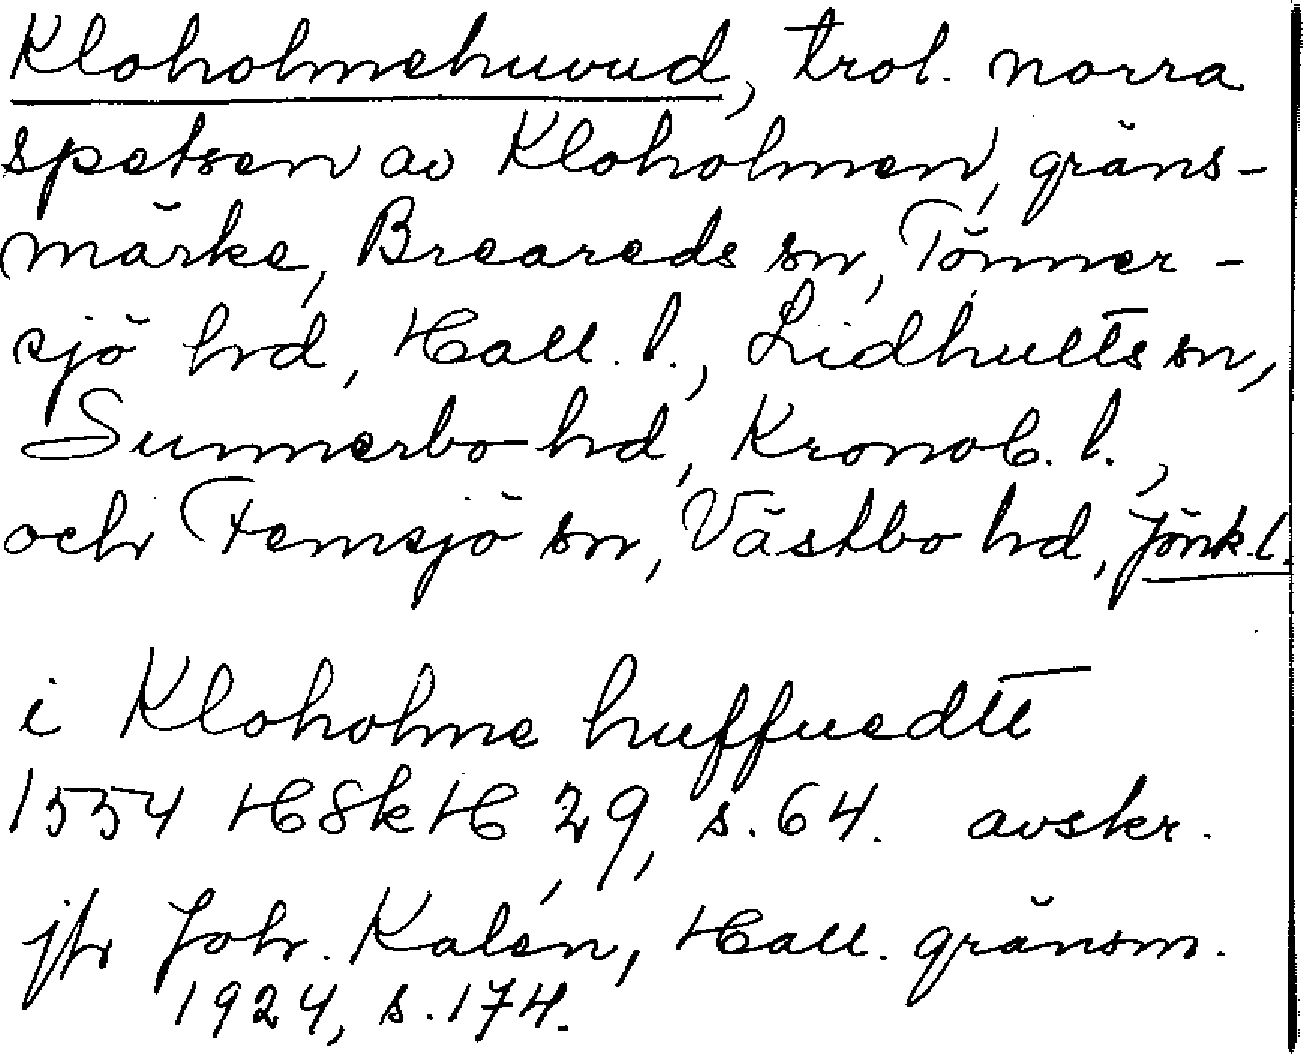 Kloholmehuvud, trol. norra
spetsen av Kloholmen, gräns-
märke, Breareds sn, Tönner-
sjö hrd, Hall. l., Lidhults sn,
Sunnerbo hrd, Kronob. l.,
och Femsjö sn, Västbo hrd, Jönk.l.
i Kloholme huffuedtt
1554 HSkH 29, s. 64. avskr.
jfr Joh. Kalén, Hall. gränsm.
1924, s. 174.